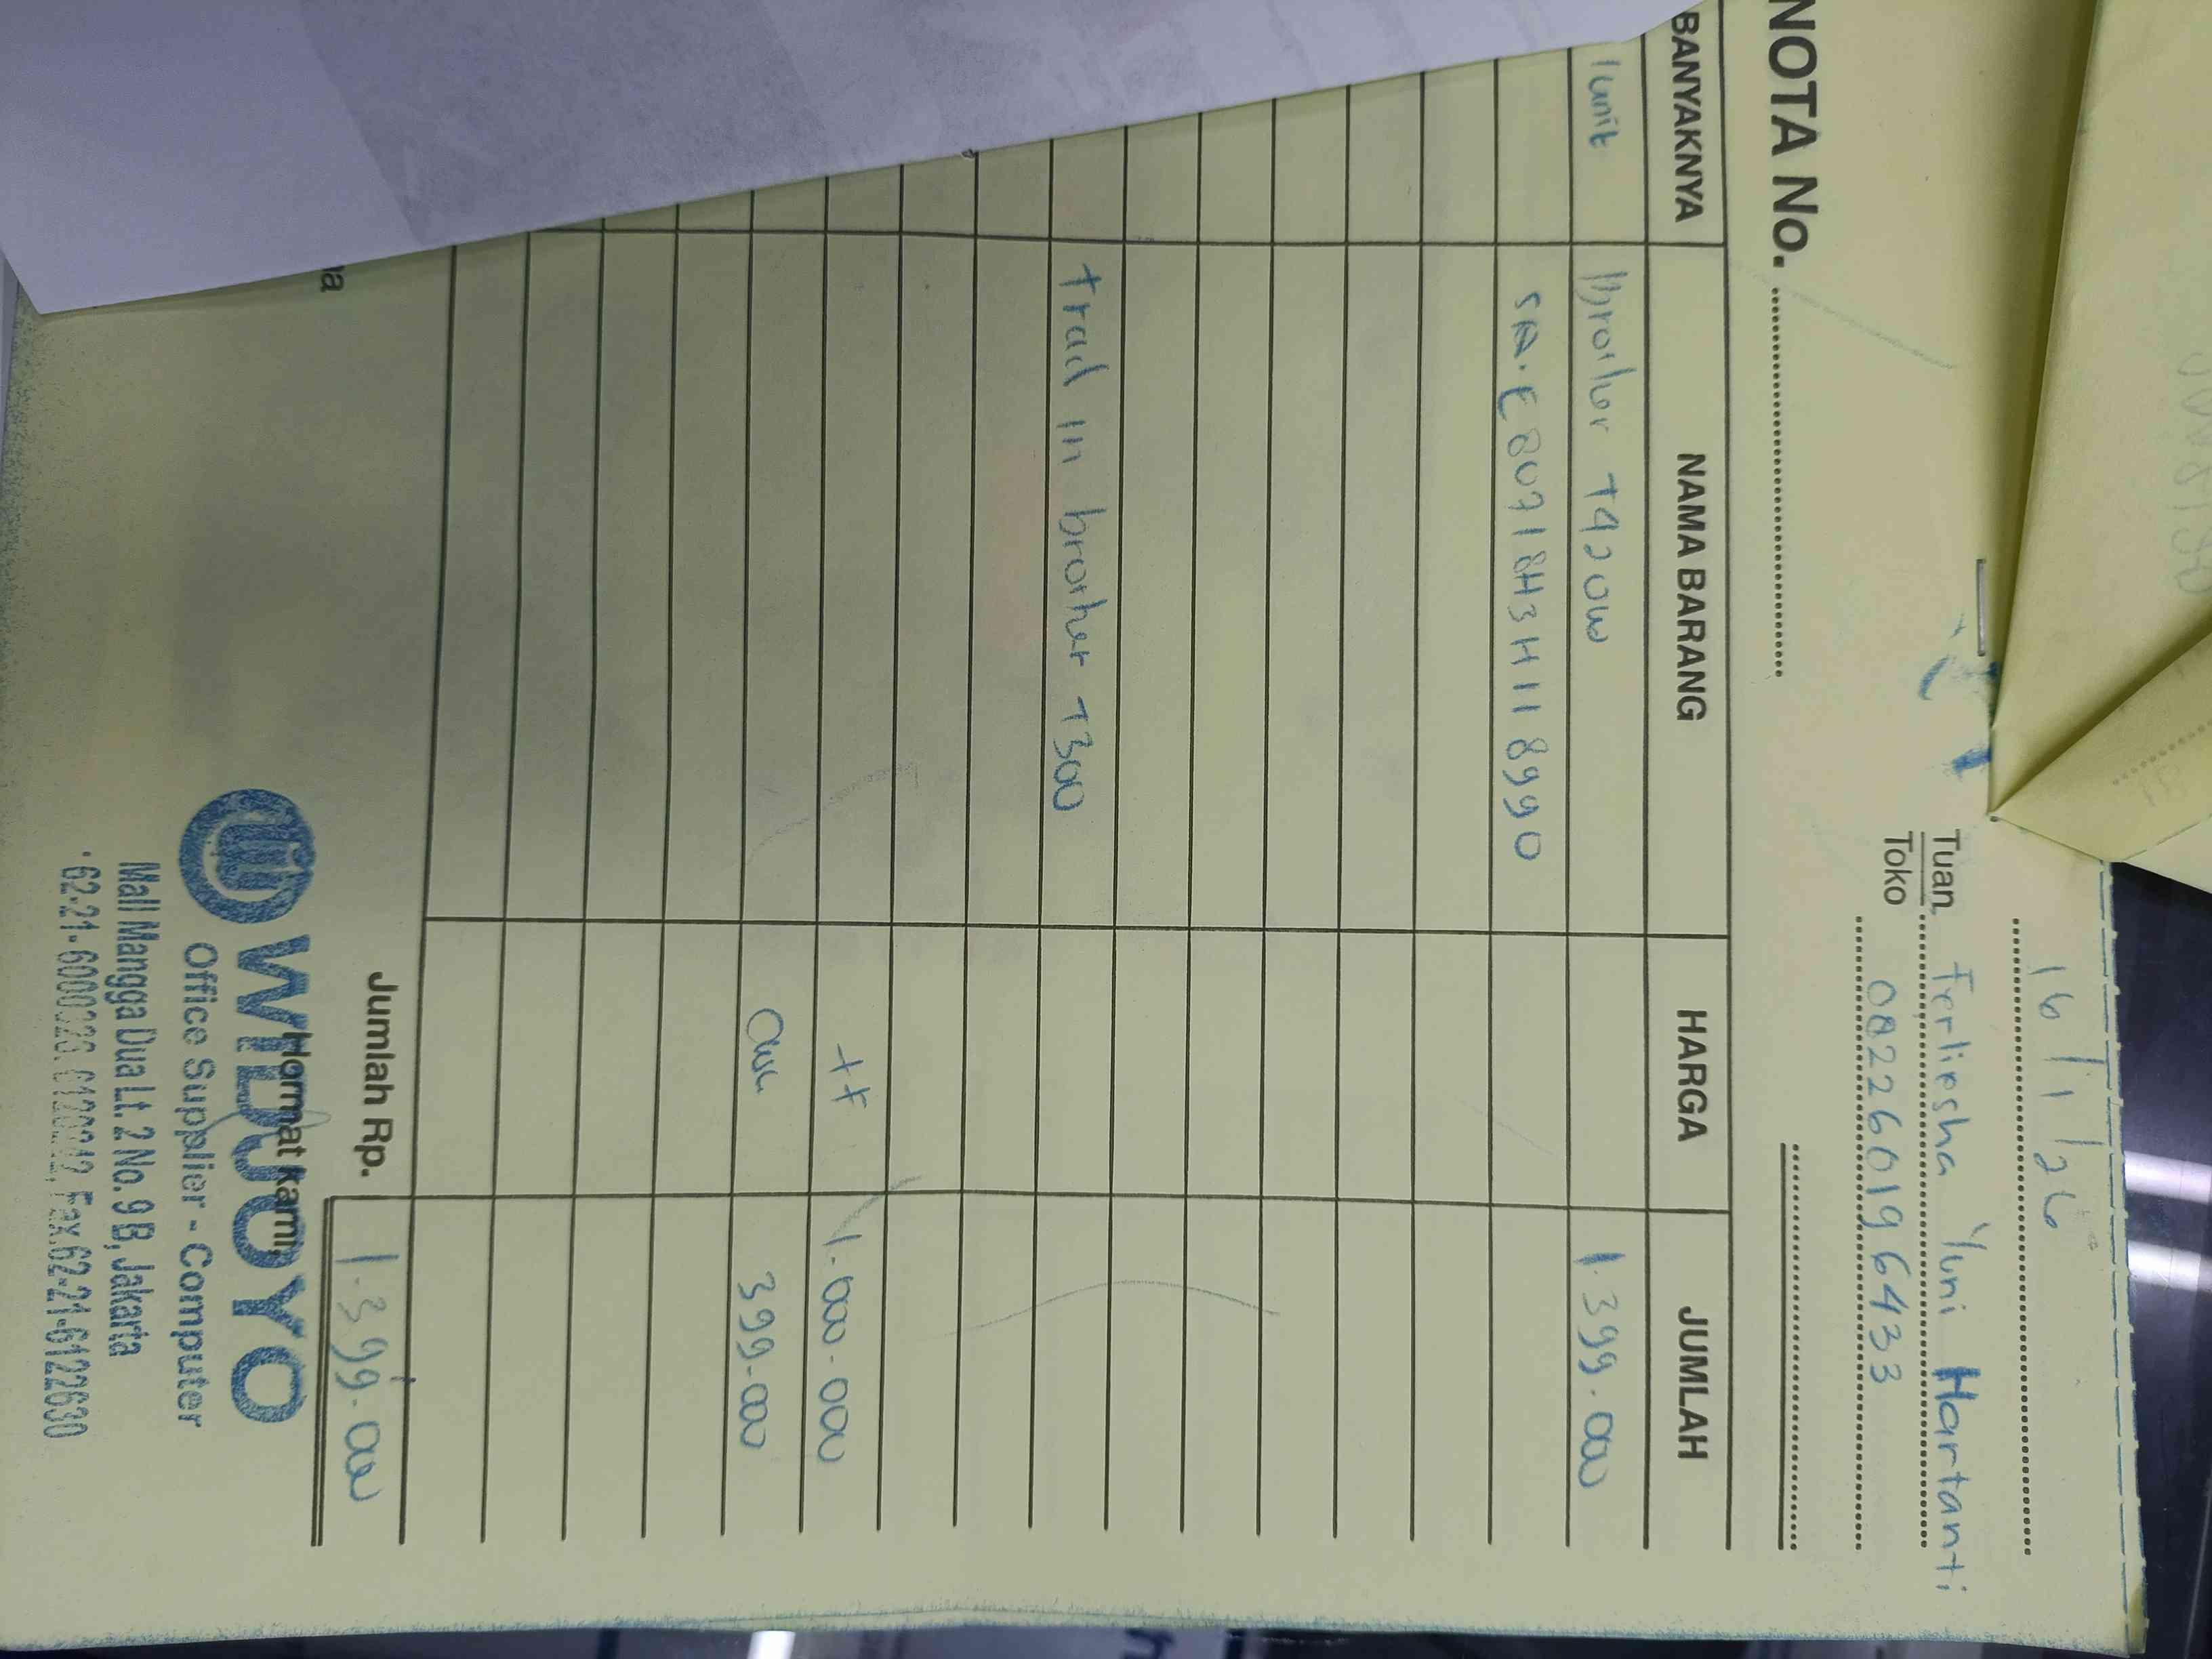 16/1/26
Tuan Ferliesha Yuni Hartanti
Toko 082260196433
NOTA No.
BANYAKNYA NAMA BARANG HARGA JUMLAH
1 unit Brother T420W 1.399.000
SN.E80718H3H118990
trad in brother T300
tf 1.000.000
399.000
Jumlah Rp. 1.399.000
Hormat kami,
WIDJOYO
Office Supplier - Computer
Mall Mangga Dua Lt. 2 No. 9 B, Jakarta